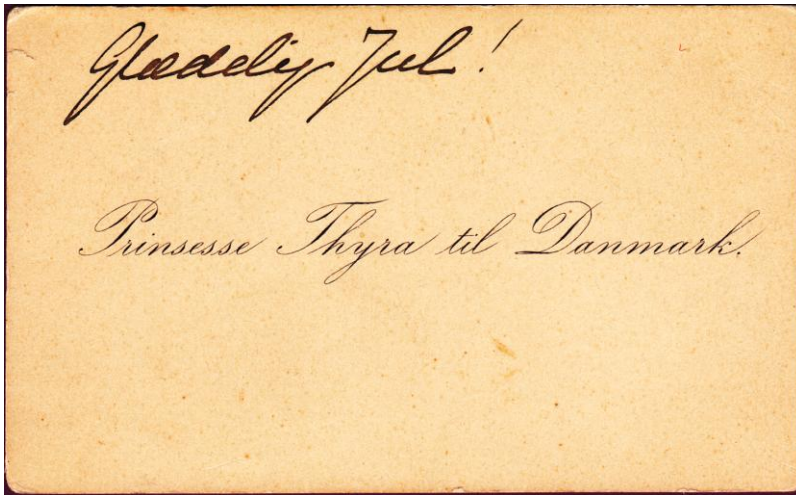 Glædelig Jul!
Prinsesse Thyra til Danmark.